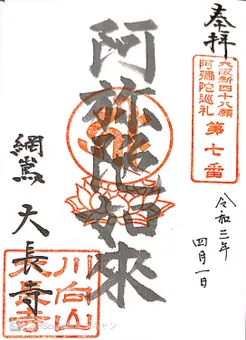 奉拝
大阪新四十八願
阿彌陀巡礼
第七番
令和三年
四月一日
阿弥陀如來
網島
大長寺
川向山
大長寺